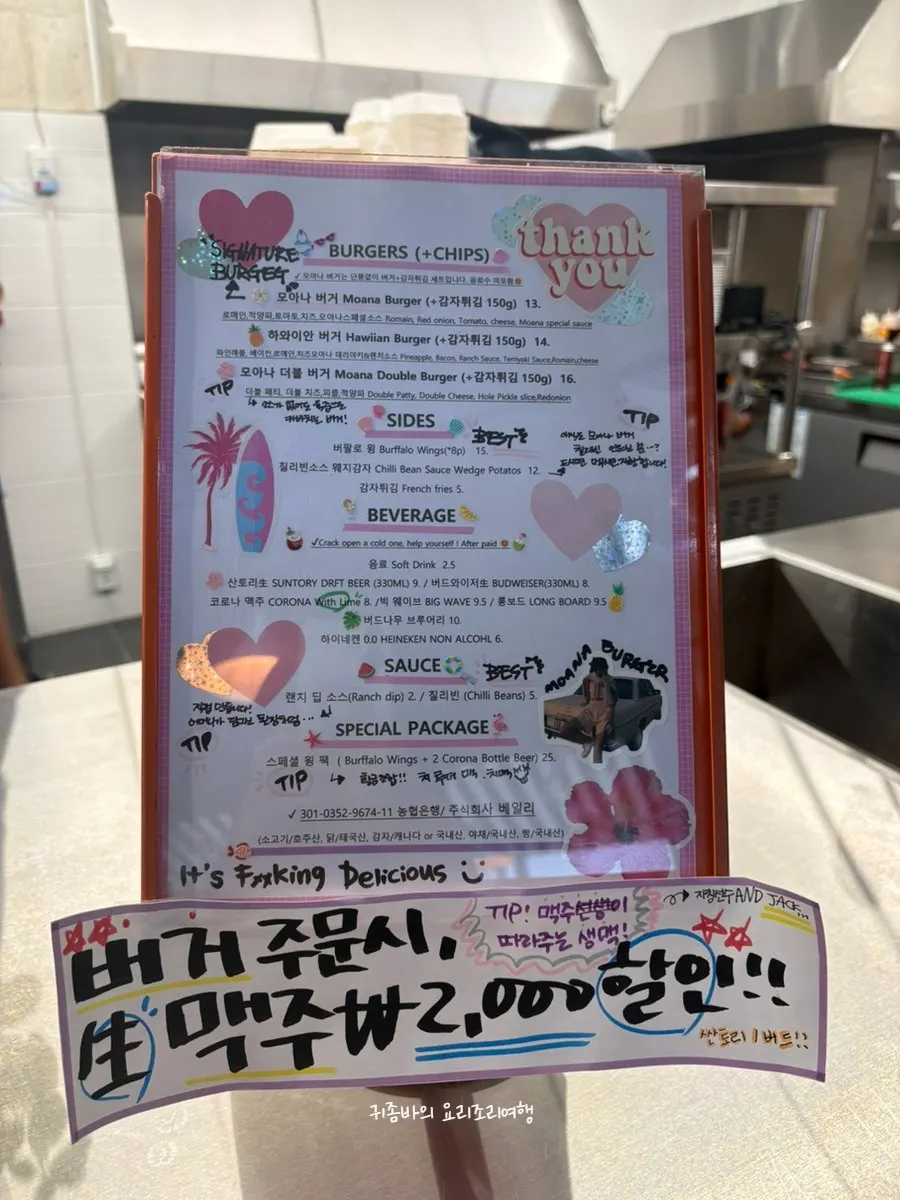 thank you
"SIGNATURE BURGER"
BURGERS (+CHIPS)
✓ 모아나 버거는 단품없이 버거+감자튀김 세트입니다. 음료수 미포함
모아나 버거 Moana Burger (+감자튀김 150g) 13.
로메인,적양파,토마토,치즈,모아나스페셜소스 Romain, Red onion, Tomato, cheese, Moana special sauce
하와이안 버거 Hawiian Burger (+감자튀김 150g) 14.
파인애플, 베이컨,로메인,치즈모아나 테리야키&랜치소스 Pineapple, Bacon, Ranch Sauce, Terriyaki Sauce,Romain,cheese
모아나 더블 버거 Moana Double Burger (+감자튀김 150g) 16.
TIP
더블 패티, 더블 치즈,피클,적양파 Double Patty, Double Cheese, Hole Pickle slice,Redonion
SIDES
TIP
버팔로 윙 Burffalo Wings(*8p) 15.
BEST
칠리빈소스 웨지감자 Chilli Bean Sauce Wedge Potatos 12.
감자튀김 French fries 5.
BEVERAGE
✓Crack open a cold one, help yourself ! After paid
음료 Soft Drink 2.5
산토리生 SUNTORY DRFT BEER (330ML) 9. / 버드와이저生 BUDWEISER(330ML) 8.
코로나 맥주 CORONA With Lime 8. /빅 웨이브 BIG WAVE 9.5 / 롱보드 LONG BOARD 9.5
버드나무 브루어리 10.
하이네켄 0.0 HEINEKEN NON ALCOHL 6.
SAUCE
BEST
MOANA BURGER
랜치 딥 소스(Ranch dip) 2. / 칠리빈 (Chilli Beans) 5.
TIP
SPECIAL PACKAGE
스페셜 윙 팩 ( Burffalo Wings + 2 Corona Bottle Beer) 25.
TIP
✓ 301-0352-9674-11 농협은행/ 주식회사 베일리
(소고기/호주산, 닭/태국산, 감자/캐나다 or 국내산, 야채/국내산, 빵/국내산)
It's Fxxking Delicious
TIP! 맥주선생이
따라주는 생맥!
AND JACK
버거 주문시,
生 맥주 ₩2,000 할인!!
싼토리 / 버드!!
귀좀바의 요리조리여행